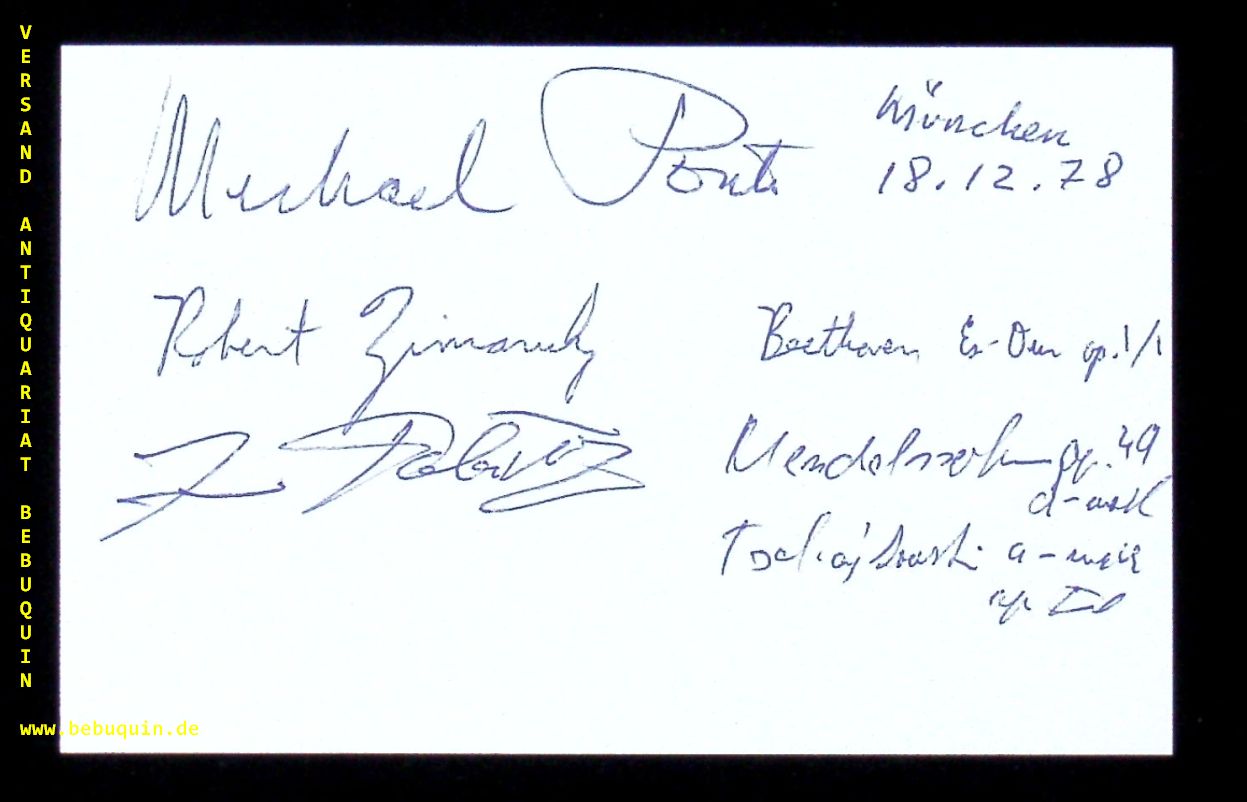 VERSAND ANTIQUARIAT BEBUQUIN
Michael Ponti
München
18.12.78
Robert Zimansky
Beethoven Es-Dur op.1/1
Mendelssohn op. 49
d-moll
Tschajkowski a-moll
op 50
www.bebuquin.de